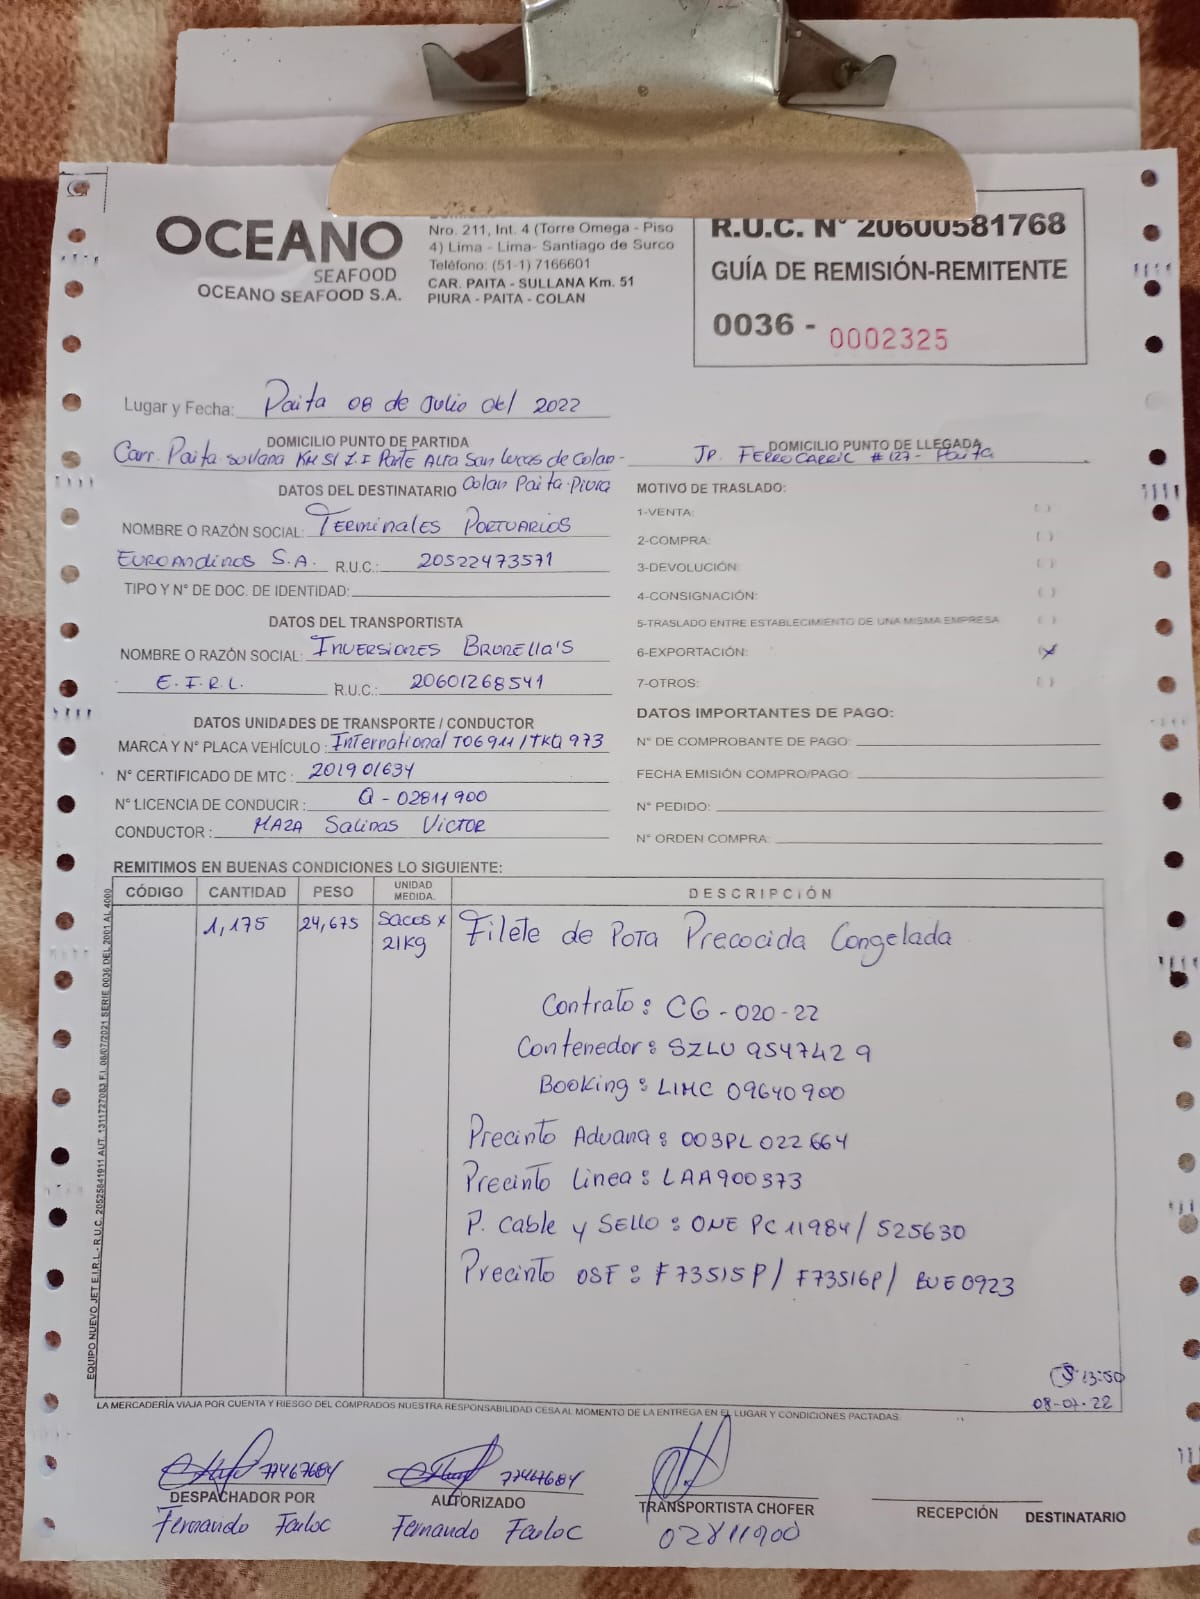 OCEANO
SEAFOOD
OCEANO SEAFOOD S.A.
Nro. 211, Int. 4 (Torre Omega - Piso
4) Lima - Lima- Santiago de Surco
Teléfono: (51-1) 7166601
CAR. PAITA - SULLANA Km. 51
PIURA - PAITA - COLAN
R.U.C. N° 20600581768
GUÍA DE REMISIÓN-REMITENTE
0036 - 0002325
Lugar y Fecha: Paita 08 de Julio del 2022
DOMICILIO PUNTO DE PARTIDA
Carr. Paita sullana KM 51 Z.I Parte Alta San Lucas de Colan-
Colan Paita-Piura
DOMICILIO PUNTO DE LLEGADA
Jr. FERROCARRIL #127- Paita
DATOS DEL DESTINATARIO
NOMBRE O RAZÓN SOCIAL: Terminales Portuarios
Euroandinos S.A. R.U.C.: 20522473571
TIPO Y N° DE DOC. DE IDENTIDAD:
DATOS DEL TRANSPORTISTA
NOMBRE O RAZÓN SOCIAL: Inversiones Brunella's
E.I.R.L. R.U.C.: 20601268541
DATOS UNIDADES DE TRANSPORTE / CONDUCTOR
MARCA Y N° PLACA VEHÍCULO: International T06911/TKQ 973
N° CERTIFICADO DE MTC: 201901634
N° LICENCIA DE CONDUCIR: Q-02811900
CONDUCTOR: MAZA Salinas Victor
MOTIVO DE TRASLADO:
1-VENTA: ( )
2-COMPRA: ( )
3-DEVOLUCIÓN: ( )
4-CONSIGNACIÓN: ( )
5-TRASLADO ENTRE ESTABLECIMIENTO DE UNA MISMA EMPRESA ( )
6-EXPORTACIÓN: (x)
7-OTROS: ( )
DATOS IMPORTANTES DE PAGO:
N° DE COMPROBANTE DE PAGO:
FECHA EMISIÓN COMPRO/PAGO:
N° PEDIDO:
N° ORDEN COMPRA:
REMITIMOS EN BUENAS CONDICIONES LO SIGUIENTE:
CÓDIGO CANTIDAD PESO UNIDAD MEDIDA. DESCRIPCIÓN
1,175 24,675 Sacos x 21Kg Filete de Pota Precocida Congelada
Contrato: CG-020-22
Contenedor: SZLU 954742 9
Booking: LIMC 09640900
Precinto Aduana: 003PL022664
Precinto Linea: LAA900373
P. Cable y Sello: ONE PC11984/525630
Precinto OSF: F73515P/F73516P/BUE0923
13:50
08-07-22
EQUIPO NUEVO JET E.I.R.L.- R.U.C. 20525841911 AUT. 1311727083 F.I. 08/07/2021 SERIE 0036 DEL 2001 AL 4000
LA MERCADERÍA VIAJA POR CUENTA Y RIESGO DEL COMPRADOS NUESTRA RESPONSABILIDAD CESA AL MOMENTO DE LA ENTREGA EN EL LUGAR Y CONDICIONES PACTADAS.
77467684
DESPACHADOR POR
Fernando Farloc
77467684
AUTORIZADO
Fernando Farloc
TRANSPORTISTA CHOFER
02811900
RECEPCIÓN DESTINATARIO